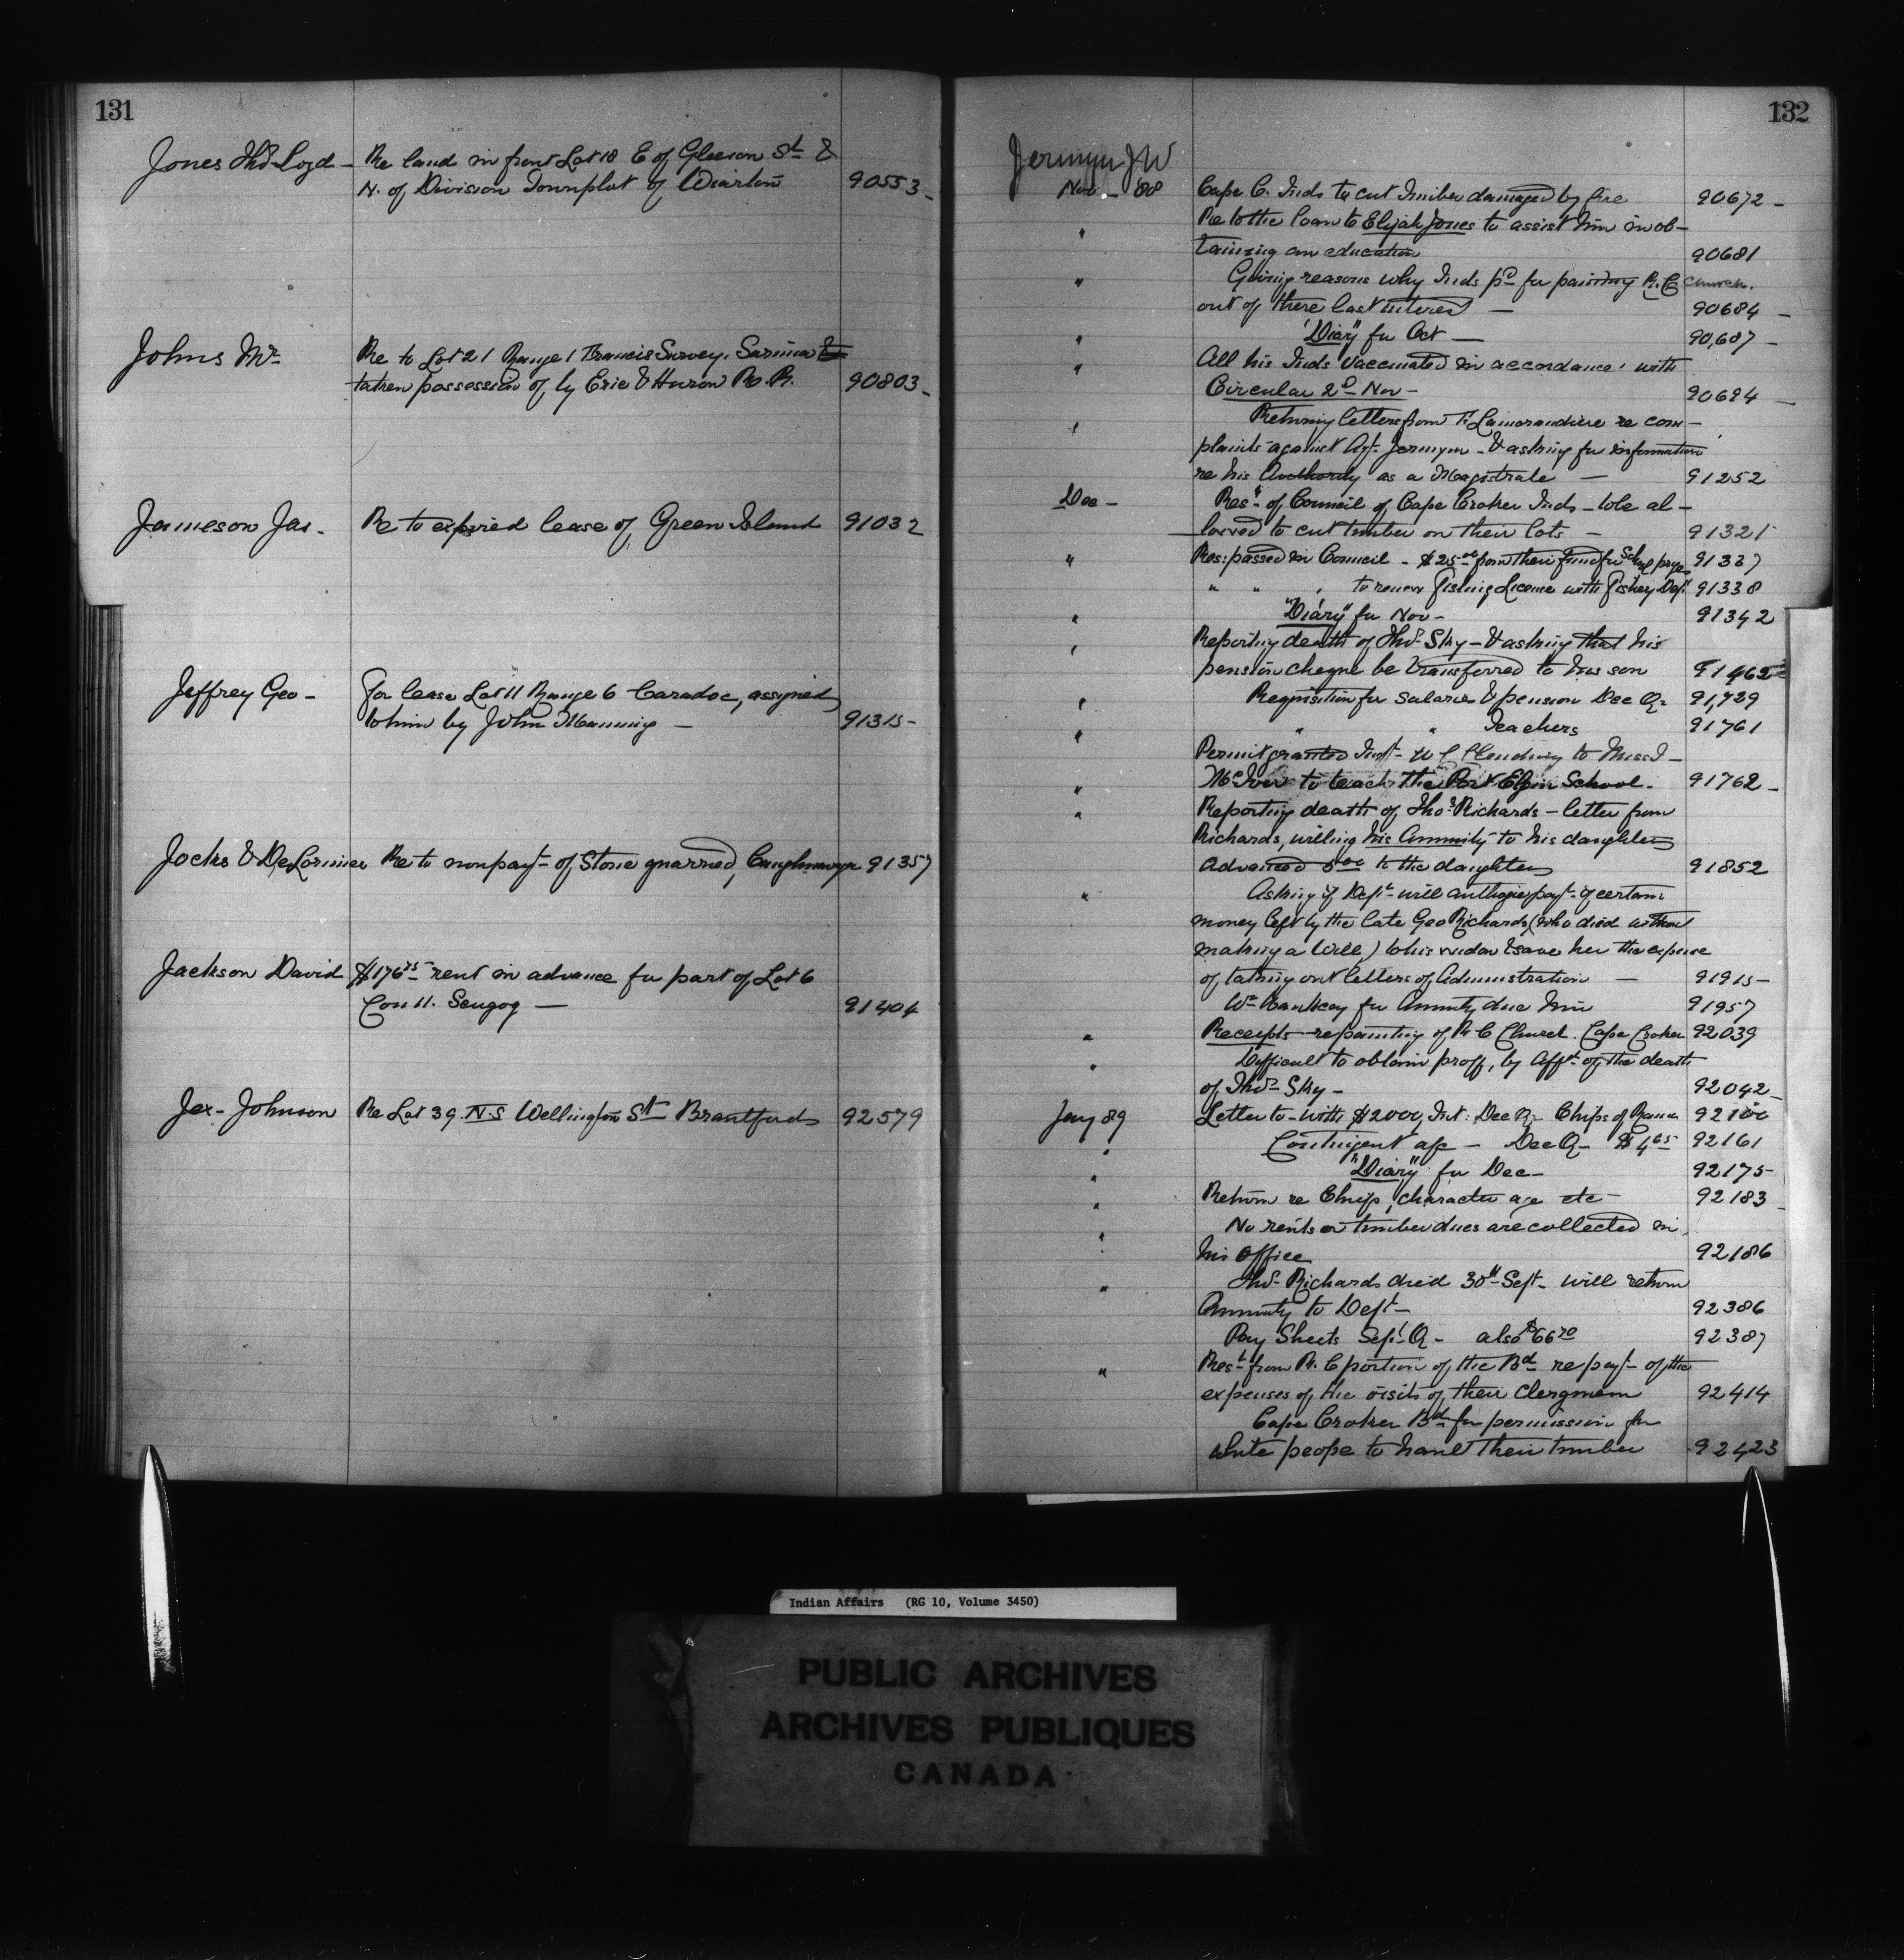 131
Jones Thos Loyd - Re land in front Lot 18 E of Gleeson St &
N. of Division Townplot of Wiarton 90553 -
Johns Mr Re to Lot 21 Range 1 Francis Survey, Sarnia
taken possession of by Erie & Huron R. R. 90803 -
Jameson Jas. Re to expired lease of Green Island 91032
Jeffrey Geo - For lease Lot 11 Range 6 Caradoc, assigned
to him by John Manning - 91315 -
Jocks & DeLorimier Re to nonpayt of Stone quarried, Caughnawaga 91357
Jackson David $176 75 rent in advance for part of Lot 6
Con 11. Scugog - 91404
Jex - Johnson Re Lot 39. N.S Wellington St Brantford 92579
132
Jermyn J W
Nov - 88 Cape C. Inds to cut timber damaged by fire 90672 -
" Re to the loan to Elijah Jones to assist him in ob-
taining an education 90681
" Giving reasons why Inds pd for painting R. C church.
out of there last interest - 90684 -
" "Diary" for Oct - 90,687 -
" All his Inds vaccinated in accordance with
Circular 2d Nov - 90694 -
" Returning letters from F. Lamorandiere re com-
plaints against Agt Jermyn - & asking for information
re his Authority as a Magistrate - 91252
Dec - Resn of Council of Cape Croker Inds - to be al-
lowed to cut timber on their lots - 91321
" Res: passed in Council - $25 00 from their fund for School 91337
" " " to renew Fishing License with Fishery Dept 91338
" "Diary" for Nov - 91342
" Reporting death of Thos Sky - & asking that his
pension cheque be transferred to his son 91462
" Requisition for Salaries & pension Dec Qr 91,729
" " " Teachers 91761
Permit granted Inst - to Miss I -
" McIver to teach the Port Elgin School. 91762 -
" Reporting death of Thos Richards - letter from
Richards, willing his Annuity to his daughter
advanced 5 00 to the daughter 91852
" Asking if Dept will authorize payt of certain
money left by the late Geo Richards, (who died without
making a Will,) to his widow & save her the expense
of taking out letters of Administration - 91915 -
Wm for Annuity due him 91957
" Receipts - repainting of R C Church. Cape Croker 92039
" Difficult to obtain proff, by Afft of the death
of Thos Sky - 92042 -
Jany 89 Letter to - with $2000, Int: Dec Qr Chips of Rama 92100
" Contingent a/c - Dec Q - $4 65 92161
" "Diary" for Dec - 92175 -
" Return re Chiefs, character age etc - 92183
" No rents or timber dues are collected in
his office 92186
" Thos Richards died 30th Sept - will return
Annuity to Dept - 92386
Pay Sheets Sept Q - also $66 70 92387
" Rest from R. C portion of the Bd re payt of the
expenses of the visits of their Clergmem 92414
Cape Croker Bd for permission for
white peope to haul their timber 92423
Indian Affairs (RG 10, Volume 3450)
PUBLIC ARCHIVES
ARCHIVES PUBLIQUES
CANADA